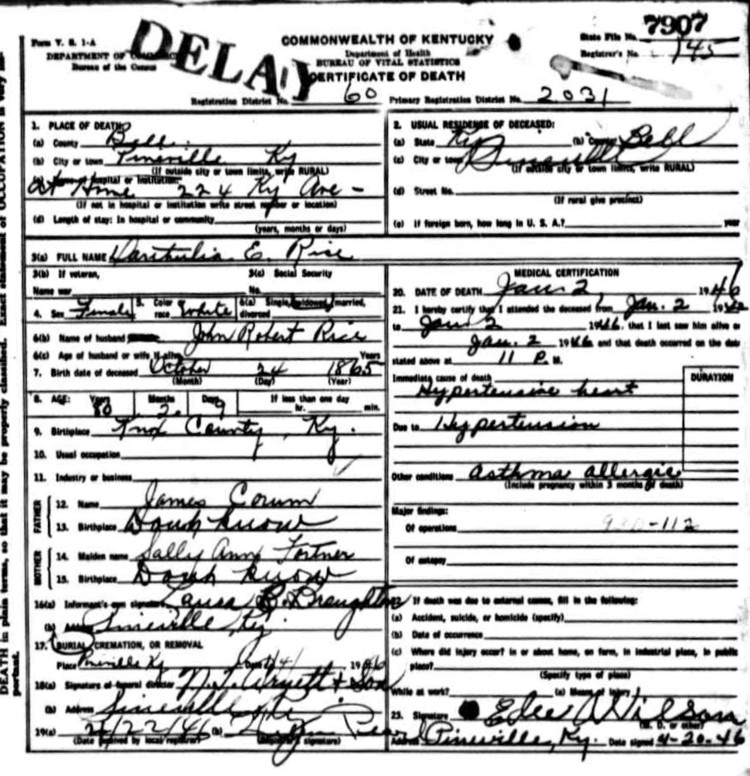 7907
DELAY
Form V. S. 1-A
COMMONWEALTH OF KENTUCKY
State File No.
DEPARTMENT OF COMMERCE
Department of Health
Registrar's No. 145
Bureau of the Census
BUREAU OF VITAL STATISTICS
CERTIFICATE OF DEATH
Registration District No. 60 Primary Registration District No. 2031
1. PLACE OF DEATH:
(a) County Bell
(b) City or town Pineville Ky
(If outside city or town limits, write RURAL)
(c) Name of hospital or institution:
At Home 224 Ky Ave -
(If not in hospital or institution write street number or location)
(d) Length of stay: In hospital or community
(years, months or days)
2. USUAL RESIDENCE OF DECEASED:
(a) State Ky (b) County Bell
(c) City or town Pineville
(If outside city or town limits, write RURAL)
(d) Street No.
(If rural give precinct)
(e) If foreign born, how long in U. S. A.? year
3(a) FULL NAME Darthulia E. Rice
3(b) If veteran,
Name war
3(c) Social Security
No.
4. Sex Femaly 5. Color race White 6(a) Single, widowed, married, divorced
6(b) Name of husband John Robert Rice
6(c) Age of husband or wife if alive Years
7. Birth date of deceased October 24 1865
(Month) (Day) (Year)
8. AGE: Years 80 Months 2 Days 9 If less than one day
hr. min.
9. Birthplace Knox County, Ky.
10. Usual occupation
11. Industry or business
FATHER
12. Name James Corum
13. Birthplace Dont Know
MOTHER
14. Maiden name Sally Ann Fortner
15. Birthplace Dont Know
16(a) Informant's own signature Laura B. Broughton
(b) Add Pineville, Ky.
17. BURIAL, CREMATION, OR REMOVAL
Place Pineville Ky 1946
18(a) Signature of funeral director & Son
(b) Address Pineville Ky
19(a) 4/22/46 (b)
(Date received by local registrar) (Registrar's signature)
MEDICAL CERTIFICATION
20. DATE OF DEATH Jan 2 1946
21. I hereby certify that I attended the deceased from Jan. 2
to Jan 2 1946. that I last saw him alive on
Jan. 2 1946 and that death occurred on the date
stated above at 11 P. M.
Immediate cause of death
DURATION
Hypertensive heart
Due to Hypertension
Other conditions Asthma allergic
(Include pregnancy within 3 months of death)
Major findings:
Of operations
Of autopsy
22. If death was due to external causes, fill in the following:
(a) Accident, suicide, or homicide (specify)
(b) Date of occurrence
(c) Where did injury occur? in or about home, on farm, in industrial place, in public
place?
(Specify type of place)
While at work? (e) Means of injury
23. Signature Edw Wilson
(M. D. or other)
Address Pineville, Ky. Date signed 4-20-46
DEATH in plain terms, so that it may be properly classified. Exact statement of OCCUPATION is very important.